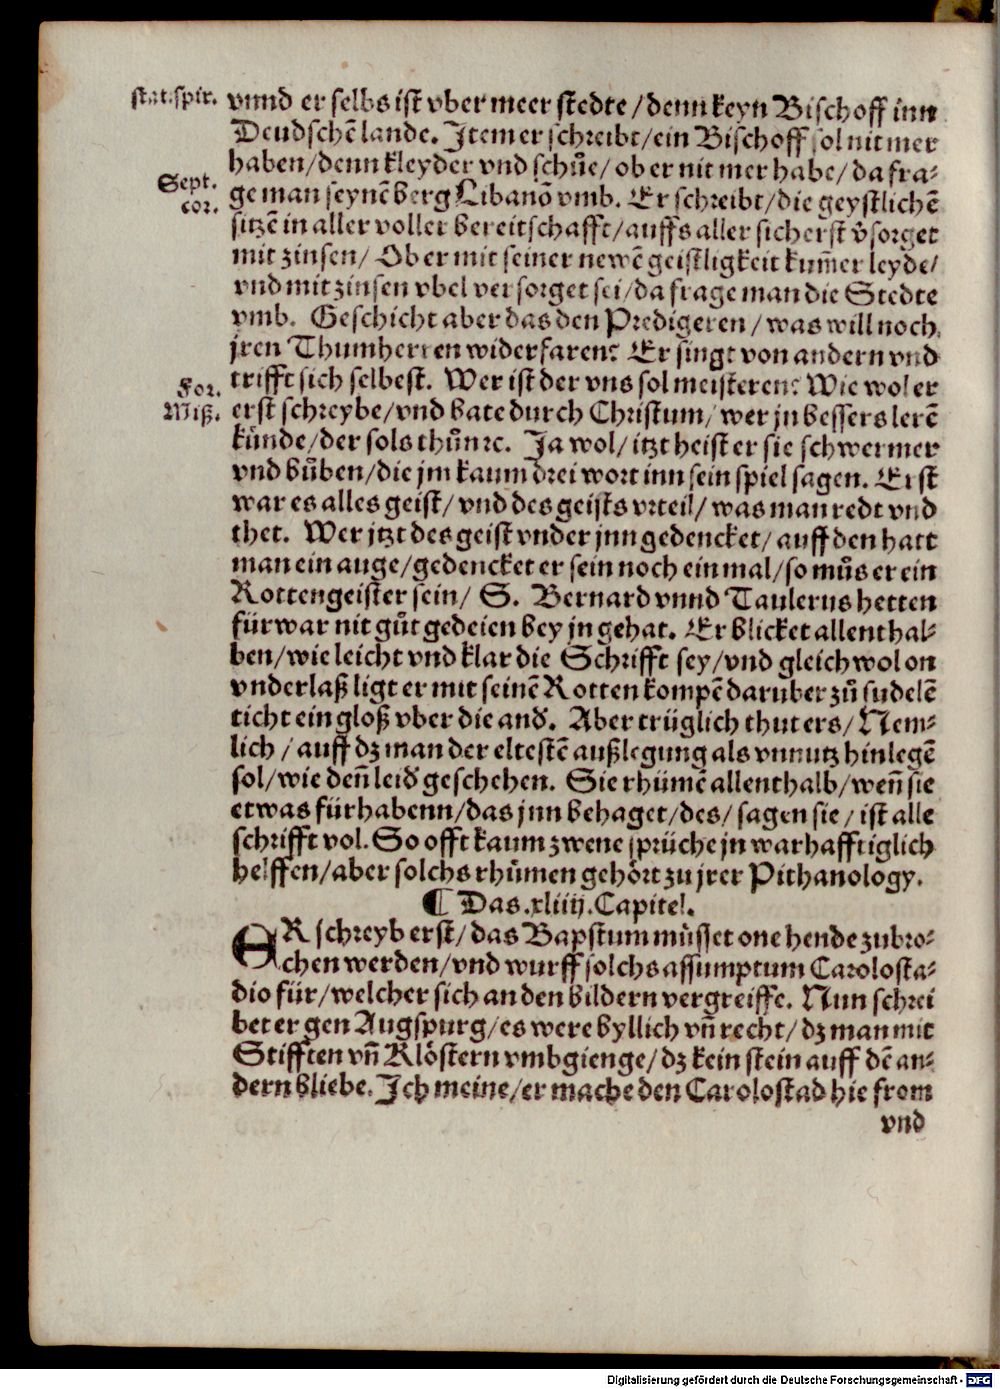 stat.spir. vnnd er selbs ist vber meer stedte / denn keyn Bischoff inn
Deudschẽ lande. Item er schreibt / ein Bischoff sol nit mer
haben / denn kleyder vnd schůe / ob er nit mer habe / da fra⸗
Sept. cor. ge man seynẽ berg Libanõ vmb. Er schreibt / die geystlichẽ
sitzẽ in aller voller bereitschafft / auffs aller sicherst v̉sorget
mit zinsen / Ob er mit seiner newẽ geistligkeit kum̃er leyde /
vnd mit zinsen vbel versorget sei / da frage man die Stedte
vmb. Geschicht aber das den Predigeren / was will noch
jren Thumherren widerfaren? Er singt von andern vnd
For. trifft sich selbest. Wer ist der vns sol meisteren? Wie wol er
Miß. erst schreybe / vnd bate durch Christum / wer jn bessers lerẽ
kůnde / der sols thůn ꝛc. Ja wol / itzt heist er sie schwermer
vnd bůben / die jm kaum drei wort inn sein spiel sagen. Erst
war es alles geist / vnd des geists vrteil / was man redt vnd
thet. Wer jtzt des geist vnder jnn gedencket / auff den hatt
man ein auge / gedencket er sein noch ein mal / so můs er ein
Rottengeister sein / S. Bernard vnnd Taulerus hetten
fürwar nit gůt gedeien bey jn gehat. Er blicket allenthal⸗
ben / wie leicht vnd klar die Schrifft sey / vnd gleichwol on
vnderlaß ligt er mit seinẽ Rotten kompẽ daruber zů sudelẽ
ticht ein gloß vber die and̉. Aber trüglich thut ers / Nem⸗
lich / auff dz man der eltestẽ außlegung als vnnutz hinlegẽ
sol / wie deñ leid̉ geschehen. Sie rhümẽ allenthalb / weñ sie
etwas fürhabenn / das jnn behaget / des / sagen sie / ist alle
schrifft vol. So offt kaum zwene sprüche jn warhafftiglich
helffen / aber solchs rhůmen gehört zu jrer Pithanology.
¶ Das .xliiij. Capitel.
ER schreyb erst / das Bapstum můsset one hende zubro⸗
chen werden / vnd wurff solchs assumptum Carolosta⸗
dio für / welcher sich an den bildern vergreiffe. Nun schrei
bet er gen Augspurg / es were byllich vñ recht / dz man mit
Stifften vñ Klöstern vmbgienge / dz kein stein auff dẽ an⸗
dern bliebe. Ich meine / er mache den Carolostad hie from
vnd
Digitalisierung gefördert durch die Deutsche Forschungsgemeinschaft - DFG